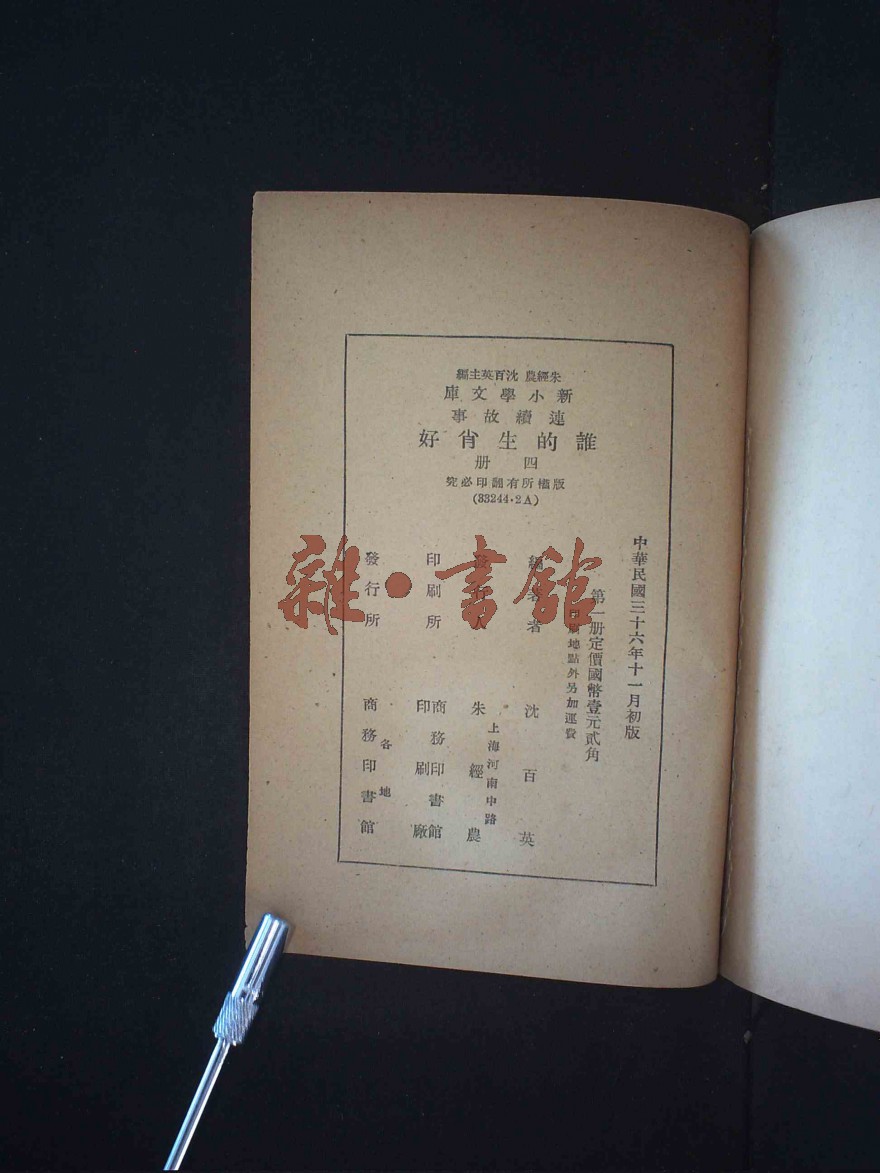 朱經農 沈百英主編
新小學文庫
連續故事
誰的生肖好
四册
版權所有翻印必究
(33244·2A)
中華民國三十六年十一月初版
第一册定價國幣壹元貳角
印刷地點外另加運費
編著者 沈百英
發行人 朱經農
上海河南中路
印刷所 商務印書館印刷廠
發行所 各地商務印書館
雜·書館